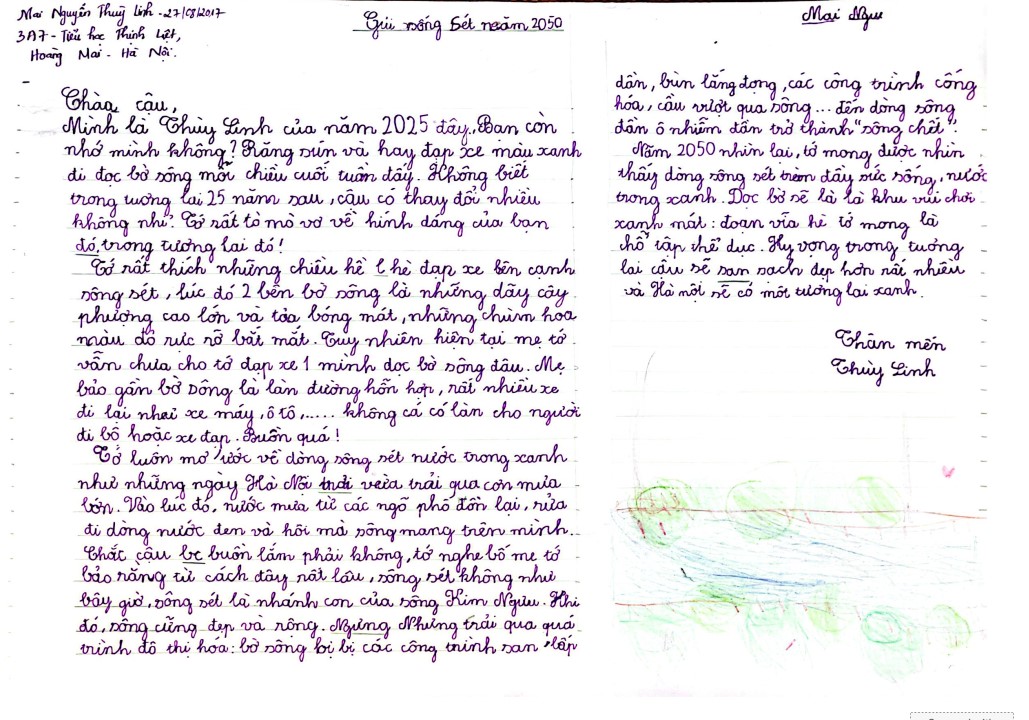 Mai Nguyễn Thuỳ Linh - 27/08/2017
3A7 - Tiểu học Thịnh Liệt,
Hoàng Mai - Hà Nội.
Gửi sông Sét năm 2050
Chào cậu,
Mình là Thùy Linh của năm 2025 đây. Bạn còn
nhớ mình không? Răng sún và hay đạp xe màu xanh
đi dọc bờ sông mỗi chiều cuối tuần đấy. Không biết
trong tương lai 25 năm sau, cậu có thay đổi nhiều
không nhỉ. Tớ rất tò mò vơ về hình dáng của bạn
đó, trong tương lai đó!
Tớ rất thích những chiều hề l hè đạp xe bên cạnh
sông sét, lúc đó 2 bên bờ sông là những dãy cây
phượng cao lớn và tỏa bóng mát, những chùm hoa
màu đỏ rực rỡ bắt mắt. Tuy nhiên hiện tại mẹ tớ
vẫn chưa cho tớ đạp xe 1 mình dọc bờ sông đâu. Mẹ
bảo gần bờ sông là làn đường hỗn hợp, rất nhiều xe
đi lại như xe máy, ô tô,..... không cá có làn cho người
đi bộ hoặc xe đạp. Buồn quá!
Tớ luôn mơ ước về dòng sông sét nước trong xanh
như những ngày Hà Nội trải vừa trải qua cơn mưa
lớn. Vào lúc đó, nước mưa từ các ngõ phố đồn lại, rửa
đi dòng nước đen và hôi mà sông mang trên mình.
Chắc cậu bc buồn lắm phải không, tớ nghe bố mẹ tớ
bảo rằng từ cách đây rất lâu, sông sét không như
bây giờ, sông sét là nhánh con của sông Kim Ngưu. Khi
đó, sông cũng đẹp và rộng. Ngưng Nhưng trải qua quá
trình đô thị hóa: bờ sông bị bị các công trình san lấp
Mai Ngư
dần, bùn lắng đọng, các công trình cống
hóa, cầu vượt qua sông... đến dòng sông
dần ô nhiễm dần trở thành "sông chết".
Năm 2050 nhìn lại, tớ mong được nhìn
thấy dòng sông sét tràn đầy sức sống, nước
trong xanh. Dọc bờ sẽ là là khu vui chơi
xanh mát: đoạn vỉa hè tớ mong là
chỗ tập thể dục. Hy vọng trong tương
lai cậu sẽ san sạch đẹp hơn rất nhiều
và Hà nội sẽ có một tương lai xanh.
Thân mến
Thùy Linh